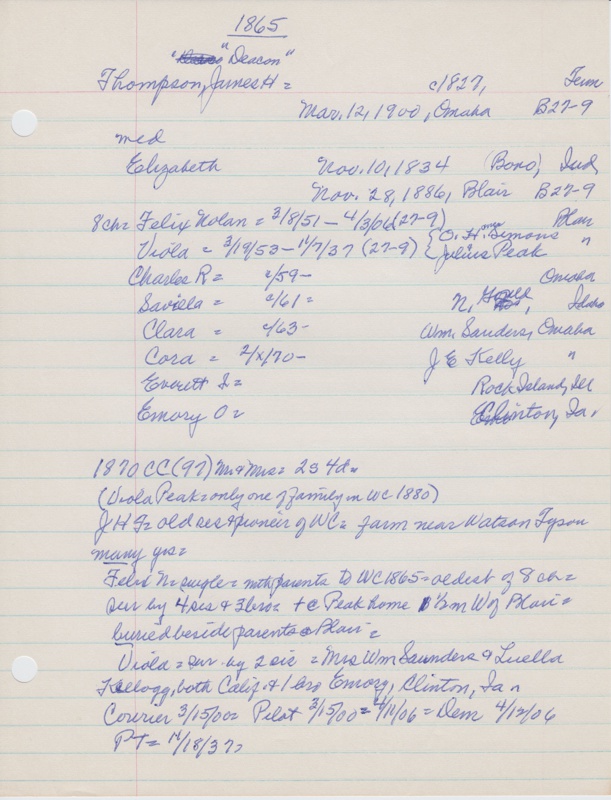 1865
" " Deacon"
Thompson, James H = c/1827, Tenn
Mar. 12, 1900, Omaha B27-9
med
Elizabeth Nov. 10, 1834 (Bono, Ind
Nov. 28, 1886, Blair B27-9
8ch = Felix Nolan = 3/8/51 - 4/3/06 (27-9) Blair
Viola = 3/19/53 - 11/7/37 (27-9) { O. H. Simons "
Julius Peak
Charles R = c/59 - Omaha
Saviela = c/61 = N, Idaho
Clara = c/63 - Wm. Saunders, Omaha
Cora = 2/x/70 - J E Kelly "
Everett I = Rock Island, Ill
Emory O = Clinton, Ia.
1870 CC (97) Mr & Mrs = 2s 4d =
(Viola Peak = only one of family in WC 1880)
J H T = old res & pioneer of WC = farm near Watson Tyson
many yrs =
Felix N = single = with parents to WC 1865 = oldest of 8 ch =
sur by 4 sis & 3 bros = + @ Peak home 1½ m W of Blair =
buried beside parents @ Blair =
Viola = sur. by 2 sis = Mrs Wm Saunders & Luella
Kellogg, both Calif. & 1 bro Emory, Clinton, Ia =
Courier 3/15/00 = Pilot 3/15/00 = 4/11/06 = Dem 4/12/06
PT = 11/18/37 =